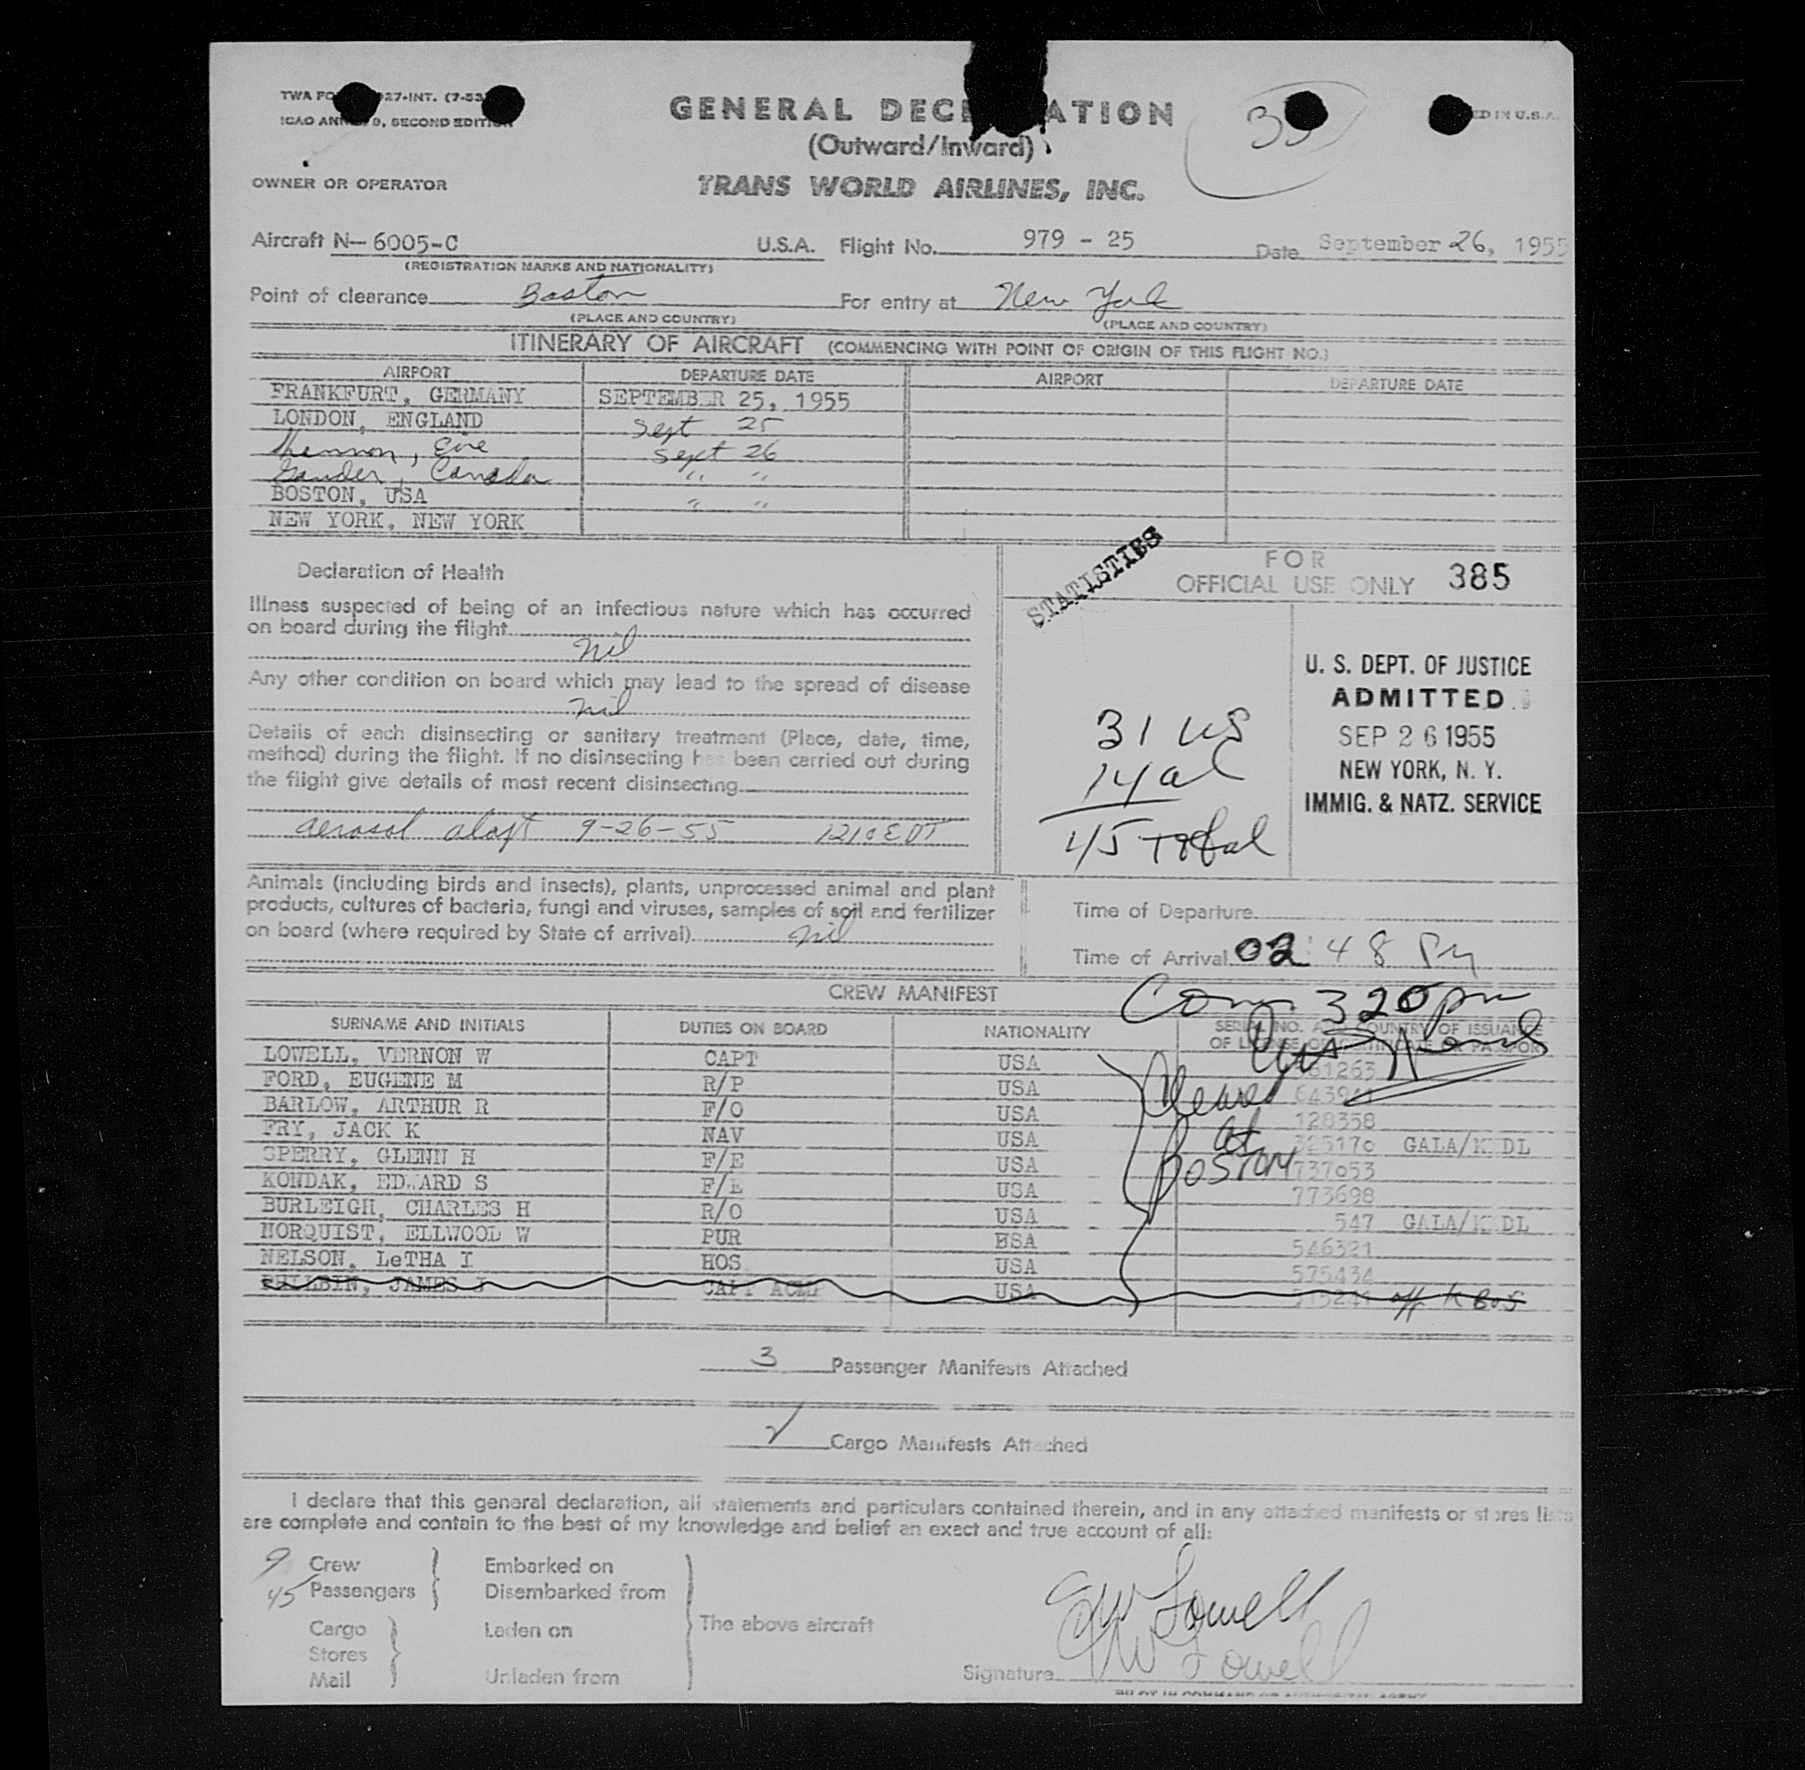 TWA FO 27-INT. (7-53
ICAO ANN 9, SECOND EDITION
GENERAL DEC ATION
(Outward/Inward)
ED IN U.S.A.
OWNER OR OPERATOR
TRANS WORLD AIRLINES, INC.
Aircraft N-6005-C U.S.A. Flight No. 979 - 25 Date September 26, 1955
(REGISTRATION MARKS AND NATIONALITY)
Point of clearance Boston For entry at New York
(PLACE AND COUNTRY) (PLACE AND COUNTRY)
ITINERARY OF AIRCRAFT (COMMENCING WITH POINT OF ORIGIN OF THIS FLIGHT NO.)
AIRPORT DEPARTURE DATE AIRPORT DEPARTURE DATE
FRANKFURT, GERMANY SEPTEMB R 25, 1955
LONDON, ENGLAND Sept 25
Shannon, Eire Sept 26
Gander, Canada " "
BOSTON, USA " "
NEW YORK, NEW YORK
STATISTICS
FOR
OFFICIAL USE ONLY 385
Declaration of Health
Illness suspected of being of an infectious nature which has occurred
on board during the flight
nil
Any other condition on board which may lead to the spread of disease
nil
Details of each disinsecting or sanitary treatment (Place, date, time,
method) during the flight. If no disinsecting has been carried out during
the flight give details of most recent disinsecting
aerosol 9-26-55 1210 EDT
U. S. DEPT. OF JUSTICE
ADMITTED
SEP 26 1955
NEW YORK, N. Y.
IMMIG. & NATZ. SERVICE
31 US
14 al
45 Total
Animals (including birds and insects), plants, unprocessed animal and plant
products, cultures of bacteria, fungi and viruses, samples of soil and fertilizer
on board (where required by State of arrival) nil
Time of Departure
Time of Arrival 02:48 PM
320 pm
CREW MANIFEST
SURNAME AND INITIALS DUTIES ON BOARD NATIONALITY SERIAL NO. AND COUNTRY OF ISSUANCE
OF LICENSE OR CERTIFICATE OR PASSPORT
LOWELL, VERNON W CAPT USA 61263
FORD, EUGENE M R/P USA
BARLOW, ARTHUR R F/O USA 128358
FRY, JACK K NAV USA GALA/K DL
SPERRY, GLENN H F/E USA 737053
KONDAK, EDWARD S F/E USA 773698
BURLEIGH, CHARLES H R/O USA 547 GALA/K DL
NORQUIST, ELLWOOD W PUR BSA 546321
NELSON, LeTHA I HOS USA 575434
JAMES J CAPT ACM USA off BOS
Cleared
at
BOSTON
3 Passenger Manifests Attached
Cargo Manifests Attached
I declare that this general declaration, all statements and particulars contained therein, and in any attached manifests or stores lists
are complete and contain to the best of my knowledge and belief an exact and true account of all:
9 Crew Embarked on
45 Passengers Disembarked from
Cargo Laden on The above aircraft
Stores
Mail Unladen from
VW Lowell
VW Lowell
Signature